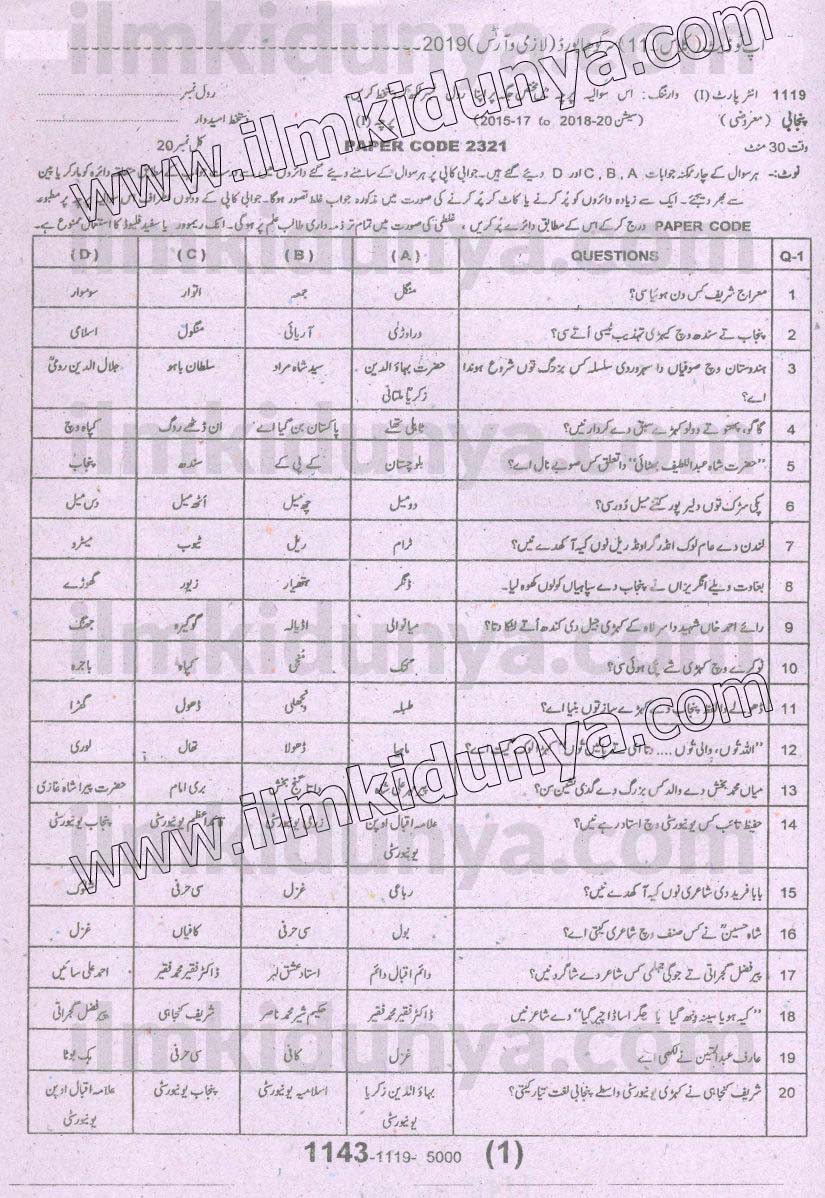 www.ilmkidunya.com
2019 (لازمی و آرٹس)
1119 انٹر پارٹ (I) وارننگ: اس سوالیہ پرچہ پر اپنا رول نمبر رول نمبر
پنجابی (معروضی) (سیشن 2015-17 to 2018-20) پرچہ (I) دستخط امیدوار
وقت 30 منٹ PAPER CODE 2321 کل نمبر 20
نوٹ:- ہر سوال کے چار ممکنہ جوابات C, B, A اور D دیئے گئے ہیں۔ جوابی کاپی پر ہر سوال کے سامنے دیئے گئے دائروں میں سے درست جواب کے دائرہ کو مارکر یا پین
سے بھر دیجئے۔ ایک سے زیادہ دائروں کو پُر کرنے یا کاٹ کر پُر کرنے کی صورت میں مذکورہ جواب غلط تصور ہوگا۔ جوابی کاپی کے دونوں پر مطبوعہ
PAPER CODE درج کر کے اس کے مطابق دائرے پُر کریں، غلطی کی صورت میں تمام تر ذمہ داری طالب علم پر ہوگی۔ انک ریموور یا سفید فلیوڈ کا استعمال ممنوع ہے۔
Q-1 QUESTIONS (A) (B) (C) (D)
1 معراج شریف کس دن ہوئیا سی؟ منگل جمعہ اتوار سوموار
2 پنجاب تے سندھ وچ کیہڑی تہذیب ٹیسی اُتے سی؟ دراوڑی آریائی منگول اسلامی
3 ہندوستان وچ صوفیاں دا سہروردی سلسلہ کس بزرگ توں شروع ہوندا حضرت بہاؤ الدین سید شاہ مراد سلطان باہو جلال الدین رومیؒ
اے؟ زکریاؒ ملتانی
4 گاگو، پھتو تے دولو کیہڑے سبق دے کردار نیں؟ ٹاہلی تھلے پاکستان بن گیا اے ان ڈٹھے روگ کپاہ وچ
5 "حضرت شاہ عبداللطیف بھٹائی" دا تعلق کس صوبے نال اے؟ بلوچستان کے پی کے سندھ پنجاب
6 پکی سڑک توں دلیر پور کتنے میل دُور سی؟ دو میل چھ میل اٹھ میل دس میل
7 لندن دے عام لوک انڈر گراؤنڈ ریل نوں کیہ آکھدے نیں؟ ٹرام ریل ٹیوب میٹرو
8 بغاوت ویلے انگریزاں نے پنجاب دے سپاہیاں کولوں کھوہ لیا۔ ڈنگر ہتھیار زیور گھوڑے
9 رائے احمد خاں شہید دا سر لاہ کے کیہڑی جیل دی کندھ اُتے لٹکا دتا؟ میانوالی اڈیالہ گوگیرہ جھنگ
10 ٹوکرے وچ کیہڑی شے پئی ہوئی سی؟ کنک مُنجی کپاہ باجرہ
11 ڈھولے دا لفظ پنجاب دے کیہڑے ساز توں بنیا اے؟ طبلہ ونجھلی ڈھول گھڑا
12 "اللہ توں، والی توں .... لوک گیت اے؟ ماہیا ڈھولا تھال لوری
13 میاں محمد بخش دے والد کس بزرگ دے گدی نشین سن؟ پیر مہر علی شاہ داتا گنج بخش بری امام حضرت پیرا شاہ غازی
14 حفیظ تائب کس یونیورسٹی وچ استاد رہے نیں؟ علامہ اقبال اوپن زرعی یونیورسٹی قائداعظم یونیورسٹی پنجاب یونیورسٹی
یونیورسٹی
15 بابا فرید دی شاعری نوں کیہ آکھدے نیں؟ رباعی غزل سی حرفی شلوک
16 شاہ حسینؒ نے کس صنف وچ شاعری کیتی اے؟ بول سی حرفی کافیاں غزل
17 پیر فضل گجراتی تے جوگی جہلمی کس شاعر دے شاگرد نیں؟ دائم اقبال دائم استاد عشق لہر ڈاکٹر فقیر محمد فقیر احمد علی سائیں
18 "کیہ ہویا سینہ وِنھ گیا یا جگر اساڈا چیر گیا" دے شاعر نیں ڈاکٹر فقیر محمد فقیر حکیم شیر محمد ناصر شریف کنجاہی پیر فضل گجراتی
19 عارف عبدالمتین نے لکھی اے غزل کافی سی حرفی یک بوٹا
20 شریف کنجاہی نے کیہڑی یونیورسٹی واسطے پنجابی لغت تیار کیتی؟ بہاؤ الدین زکریا اسلامیہ یونیورسٹی پنجاب یونیورسٹی علامہ اقبال اوپن
یونیورسٹی یونیورسٹی
1143-1119- 5000 (1)